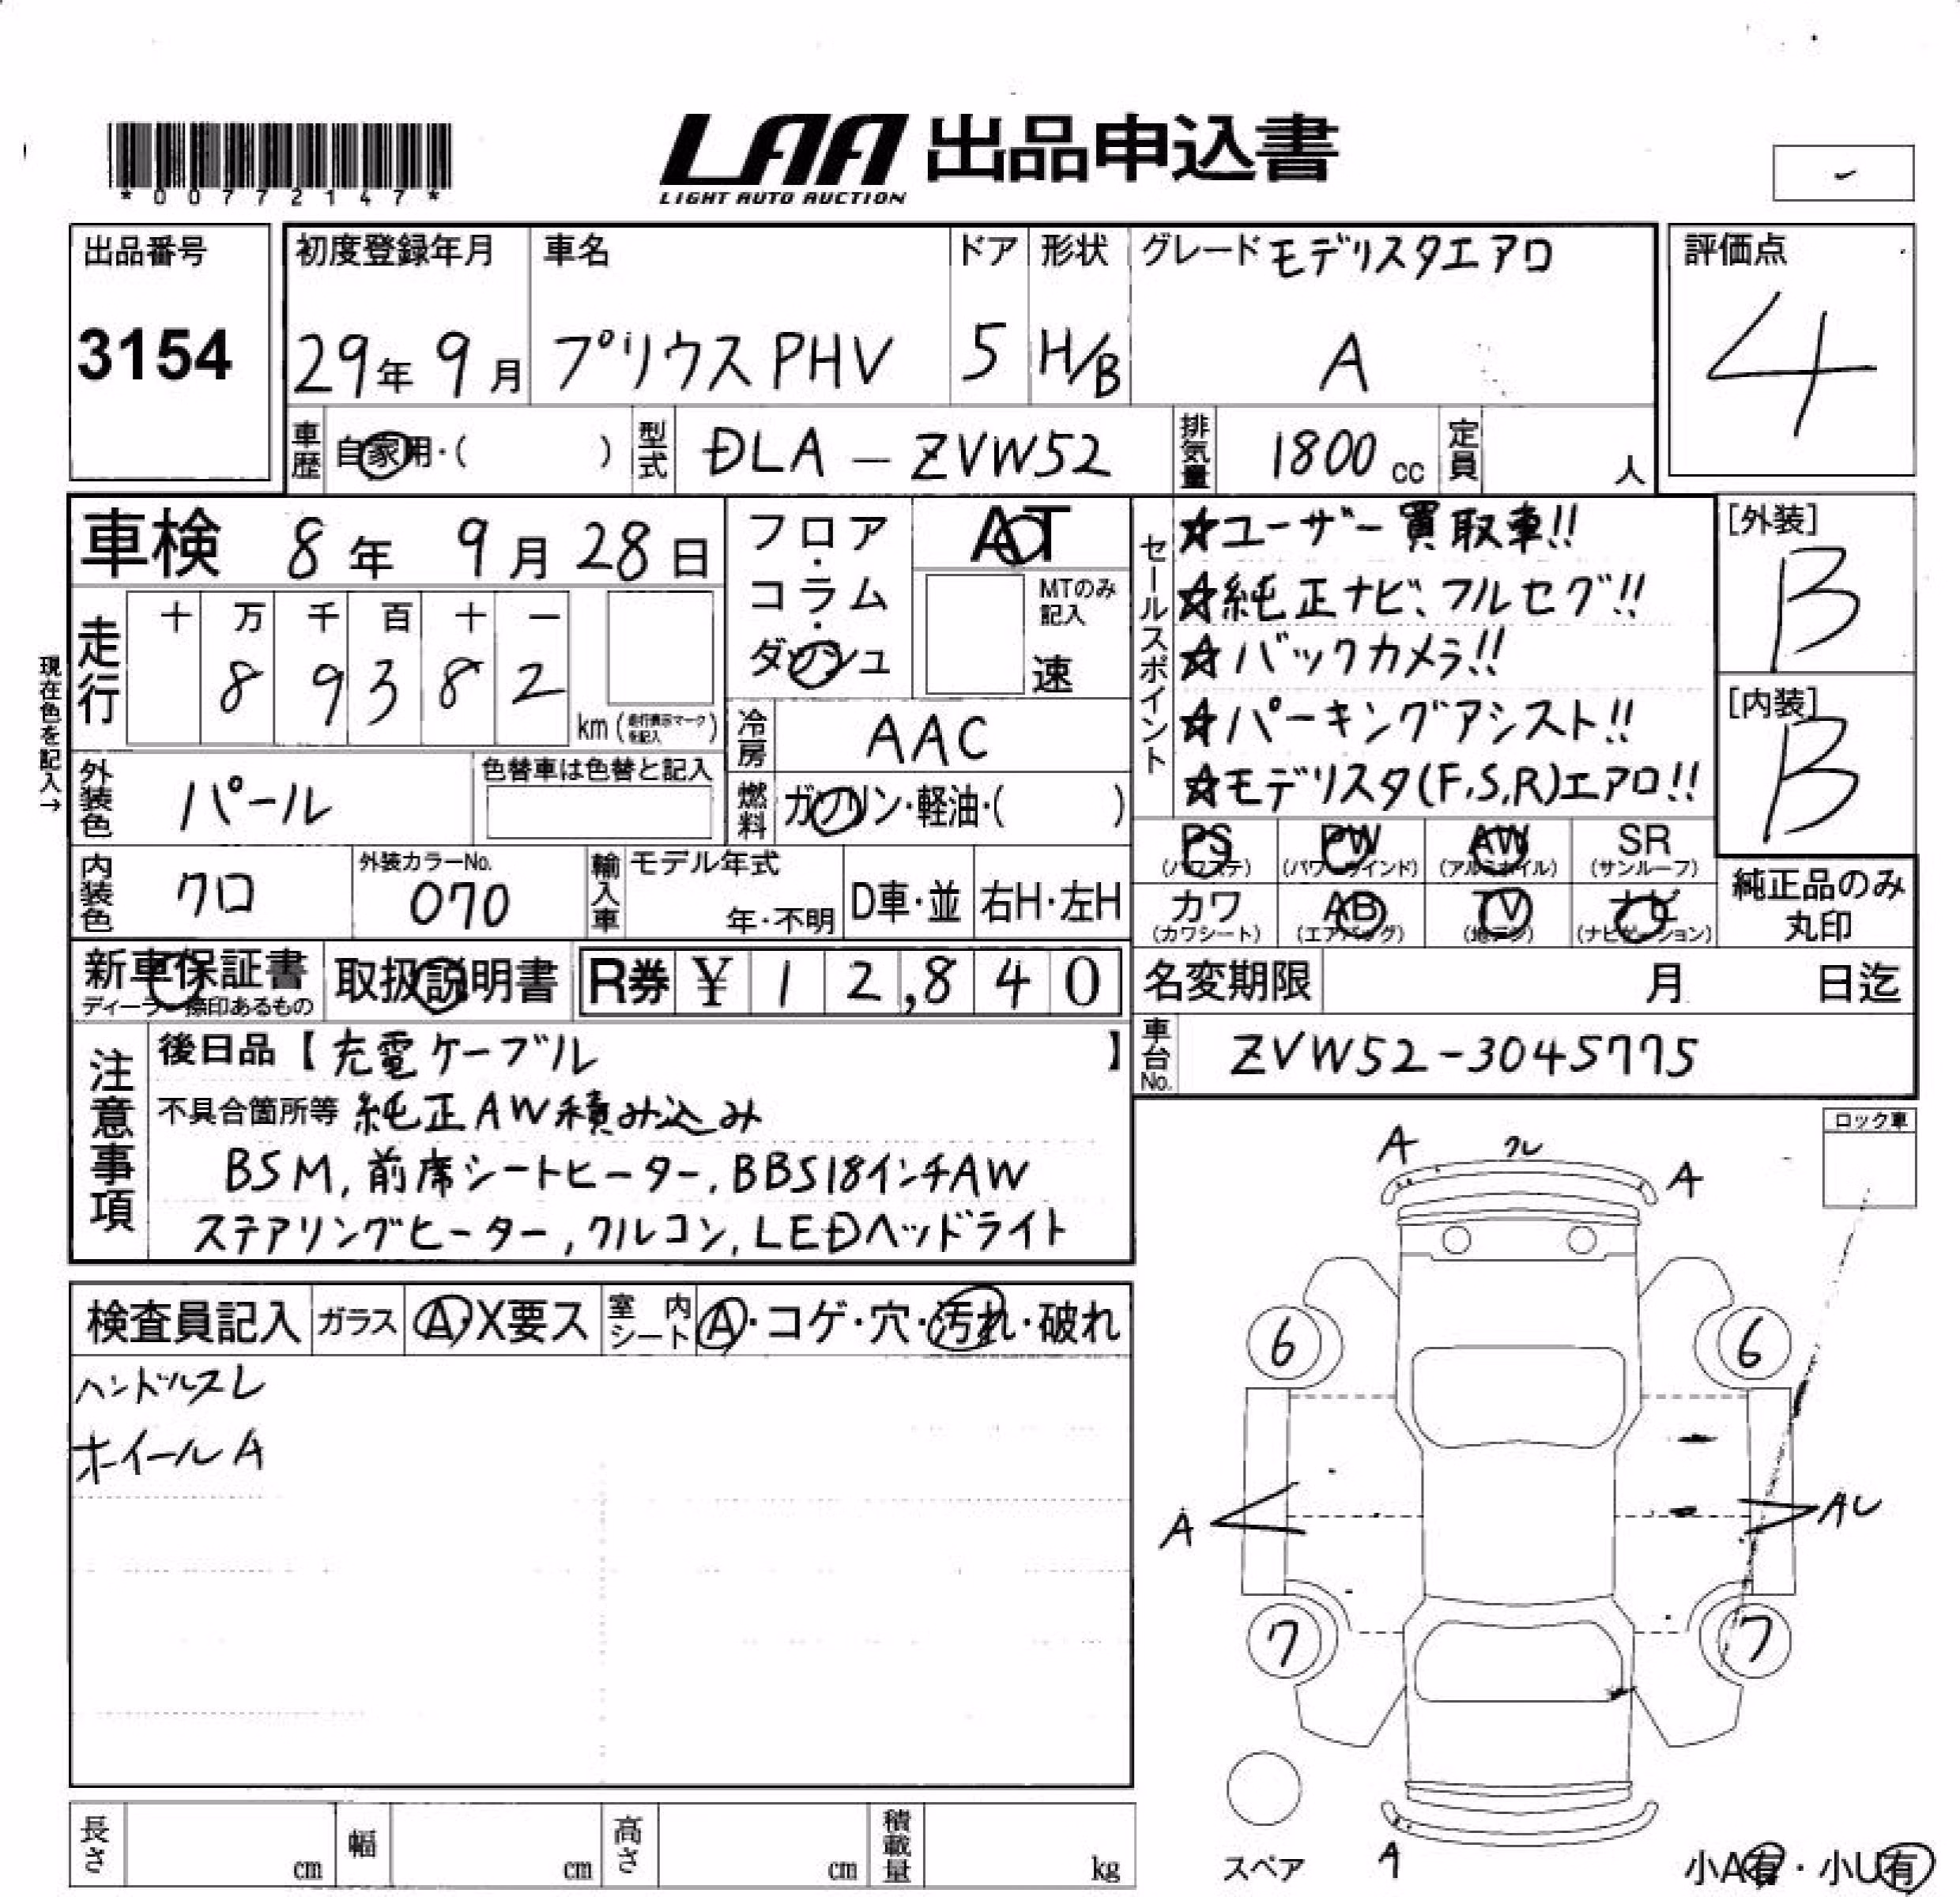 *00772147*
LAA 出品申込書
LIGHT AUTO AUCTION
出品番号
3154
初度登録年月
29年 9月
車名
プリウスPHV
ドア
5
形状
H/B
グレード モデリスタエアロ
A
評価点
4
車歴 自家用・( )
型式 DLA-ZVW52
排気量 1800 cc
定員 人
車検 8年 9月 28日
フロア・コラム・ダッシュ
AT
MTのみ記入
速
走行
十 万 千 百 十 一
8 9 3 8 2
km (走行表示マークを記入)
現在色を記入→
冷房 AAC
外装色 パール
色替車は色替と記入
燃料 ガソリン・軽油・( )
内装色 クロ
外装カラーNo.
070
輸入車 モデル年式
年・不明
D車・並
右H・左H
セールスポイント
☆ユーザー買取車!!
☆純正ナビ、フルセグ!!
☆バックカメラ!!
☆パーキングアシスト!!
☆モデリスタ(F,S,R)エアロ!!
[外装]
B
[内装]
B
PS (パワステ)
PW (パワーウインド)
AW (アルミホイル)
SR (サンルーフ)
カワ (カワシート)
AB (エアバッグ)
TV (地デジ)
ナビ (ナビゲーション)
純正品のみ
丸印
新車保証書
ディーラー捺印あるもの
取扱説明書
R券 ¥12,840
名変期限 月 日迄
車台No. ZVW52-3045775
注意事項
後日品【充電ケーブル】
不具合箇所等 純正AW積み込み
BSM, 前席シートヒーター, BBS18インチAW
ステアリングヒーター, クルコン, LEDヘッドライト
ロック車
検査員記入
ガラス A・X要ス
室内シート A・コゲ・穴・汚れ・破れ
ハンドルスレ
ホイールA
A
A
6
6
A
AU
7
7
スペア
A
小A有・小U有
長さ cm
幅 cm
高さ cm
積載量 kg